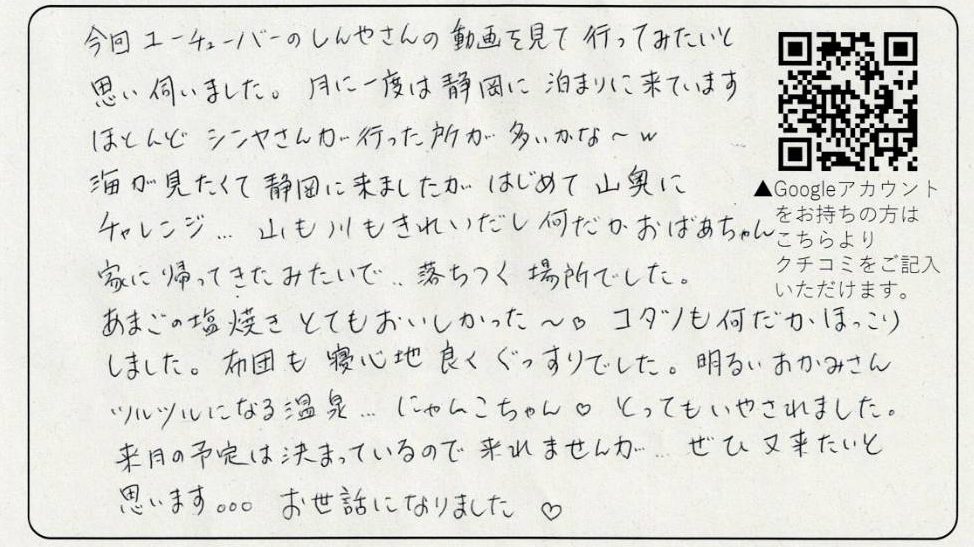 今回ユーチューバーのしんやさんの動画を見て行ってみたいと
思い伺いました。月に一度は静岡に泊まりに来ています
ほとんどシンヤさんが行った所が多いかな～w
海が見たくて静岡に来ましたがはじめて山奥に
チャレンジ… 山も川もきれいだし何だかおばあちゃん
家に帰ってきたみたいで‥落ちつく場所でした。
あまごの塩焼きとてもおいしかった～♡ コタツも何だかほっこり
しました。布団も寝心地良くぐっすりでした。明るいおかみさん
ツルツルになる温泉… にゃんこちゃん♡ とってもいやされました。
来月の予定は決まっているので来れませんが… ぜひ又来たいと
思います。。。 お世話になりました ♡
▲Googleアカウント
をお持ちの方は
こちらより
クチコミをご記入
いただけます。